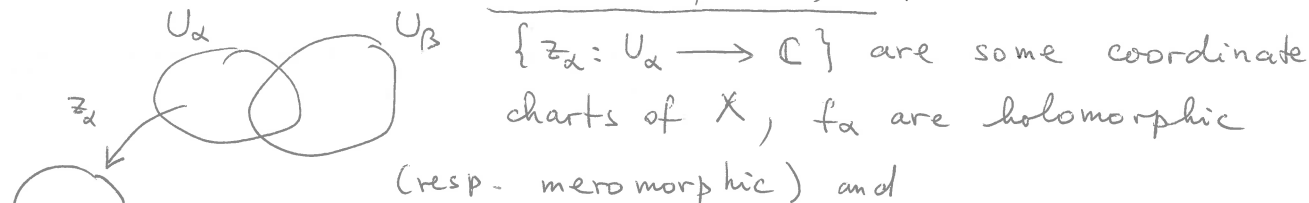 U_α U_β {z_α: U_α ⟶ ℂ} are some coordinate
z_α charts of X, f_α are holomorphic
(resp. meromorphic) and